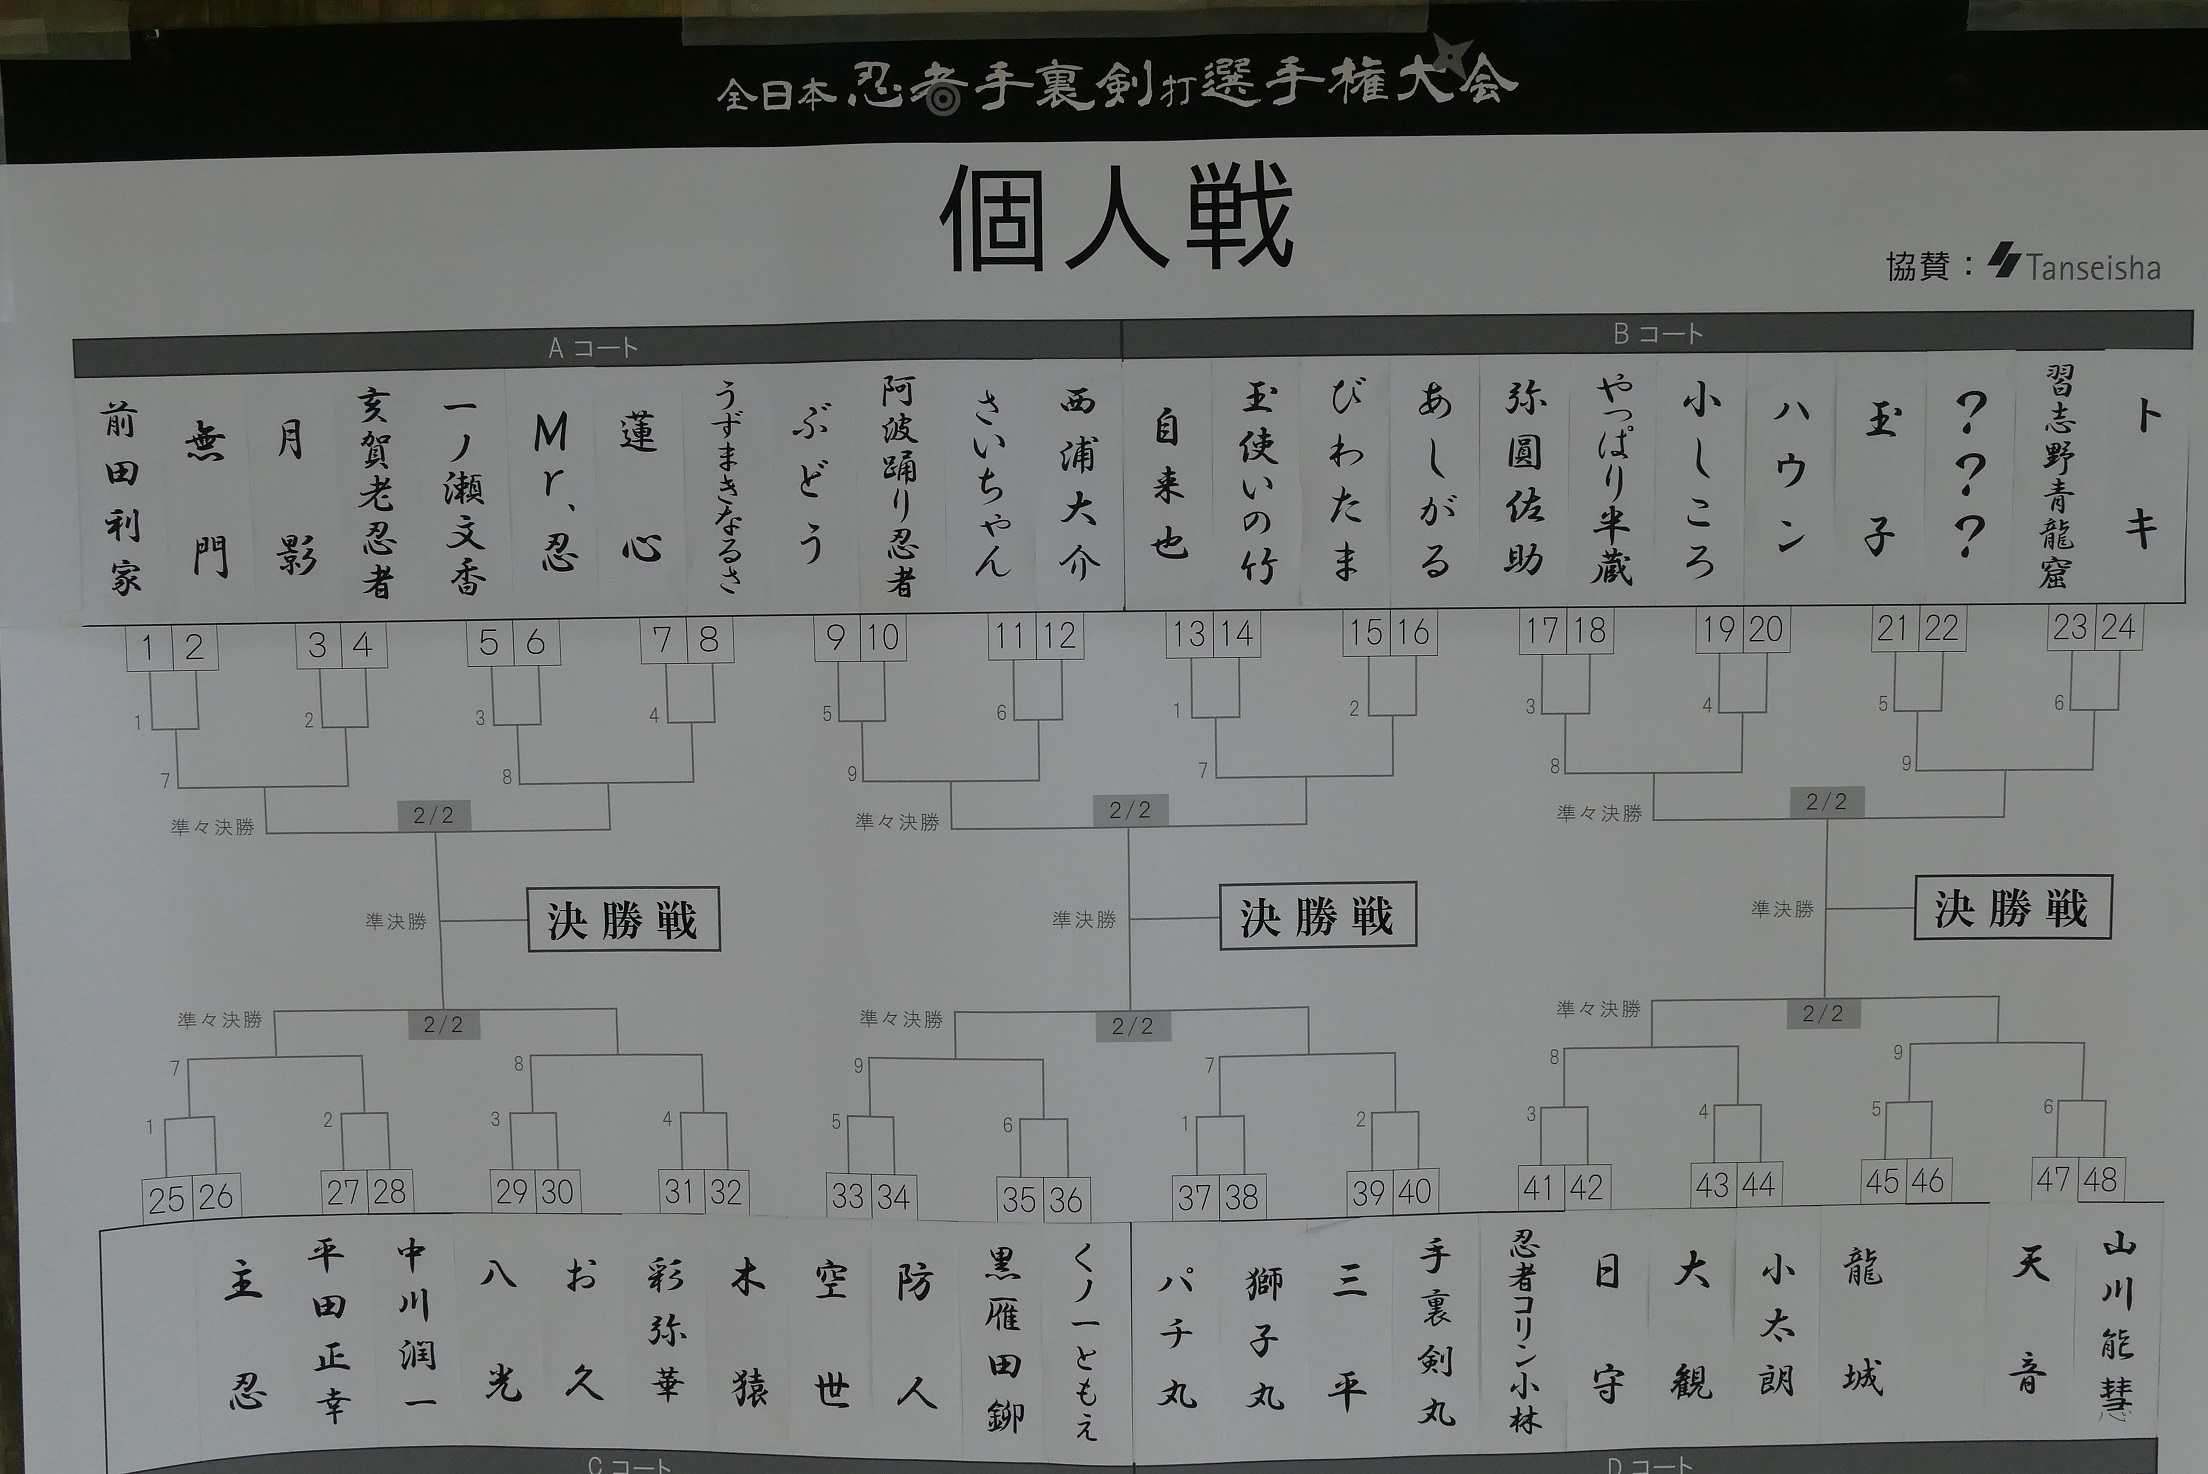 全日本忍者手裏剣打選手権大会
個人戦
協賛：Tanseisha
Aコート
Bコート
前田利家
無門
月影
亥賀老忍者
一ノ瀬文香
Mr、忍
蓮心
うずまきなるさ
ぶどう
阿波踊り忍者
さいちゃん
西浦大介
自来也
玉使いの竹
びわたま
あしがる
弥圓佐助
やっぱり半蔵
小しころ
ハウン
玉子
???
習志野青龍窟
トキ
1 2 3 4 5 6 7 8 9 10 11 12 13 14 15 16 17 18 19 20 21 22 23 24
1 2 3 4 5 6 1 2 3 4 5 6
7 8 9 7 8 9
準々決勝 2/2 準々決勝 2/2 準々決勝 2/2
準決勝 決勝戦 準決勝 決勝戦 準決勝 決勝戦
準々決勝 2/2 準々決勝 2/2 準々決勝 2/2
7 8 9 7 8 9
1 2 3 4 5 6 1 2 3 4 5 6
25 26 27 28 29 30 31 32 33 34 35 36 37 38 39 40 41 42 43 44 45 46 47 48
主忍
平田正幸
中川潤一
八光
お久
彩弥華
木猿
空世
防人
黒雁田鉚
くノ一ともえ
パチ丸
獅子丸
三平
手裏剣丸
忍者コリン小林
日守
大観
小太朗
龍城
天音
山川能慧
Cコート
Dコート